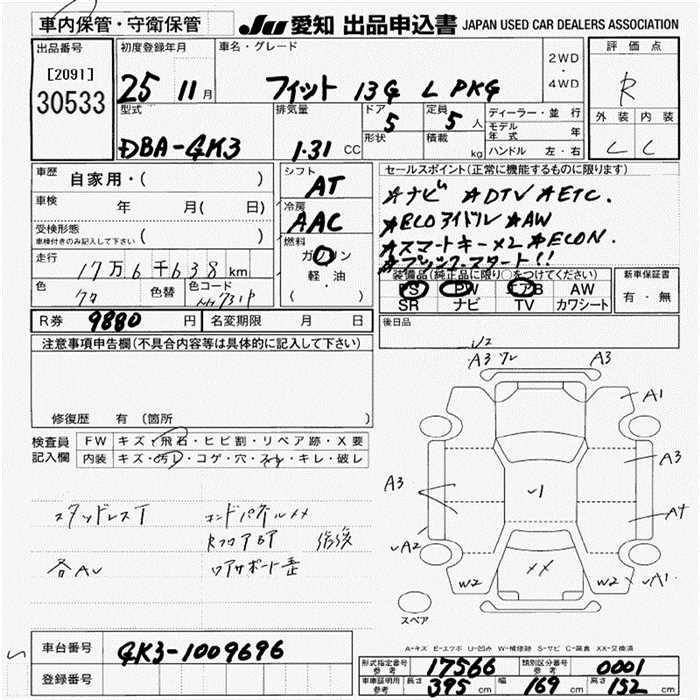 車内保管・守衛保管
JU 愛知 出品申込書 JAPAN USED CAR DEALERS ASSOCIATION
出品番号
[2091]
30533
初度登録年月
25 11月
車名・グレード
フィット 13G L PKG
2WD
・
4WD
評価点
R
外装 内装
C C
型式
DBA-GK3
排気量
1.31 CC
ドア
5
形状
定員
5人
積載
kg
ディーラー・並行
モデル年式 年
ハンドル 左・右
車歴
自家用・( )
車検
年 月( 日)
受検形態
車検付きのみ記入して下さい
( )
走行
17万6千638km
色
クロ
色替
色コード
NH731P
シフト
AT
冷房
AAC
燃料
ガソリン
・
軽・油
( )
セールスポイント(正常に機能するものに限ります)
★ナビ ★DTV ★ETC.
★ECOアイドル ★AW
★スマートキー×2 ★ECON.
★プッシュスタート!!
装備品(純正品に限り○をつけてください)
PS PW エアB AW
SR ナビ TV カワシート
新車保証書
有・無
R券 9880 円
名変期限 月 日
後日品
注意事項申告欄(不具合内容等は具体的に記入して下さい)
修復歴 有(箇所 )
検査員
記入欄
FW キズ・飛石・ヒビ割・リペア跡・X要
内装 キズ・汚レ・コゲ・穴・スレ・キレ・破レ
スタッドレスT
コンドパネル××
RフロアBP
修復
各AU
A3 ワレ A3
A1
A3
A3
A4
A2
W2
W2
A1
√1
××
スペア
A-キズ E-エクボ U-凹み W-補修跡 S-サビ C-腐食 XX-交換済
車台番号 GK3-1009696
登録番号
形式指定番号 参考 17566 類別区分番号 参考 0001
車庫証明用 参考 長さ 395 cm 幅 169 cm 高さ 152 cm